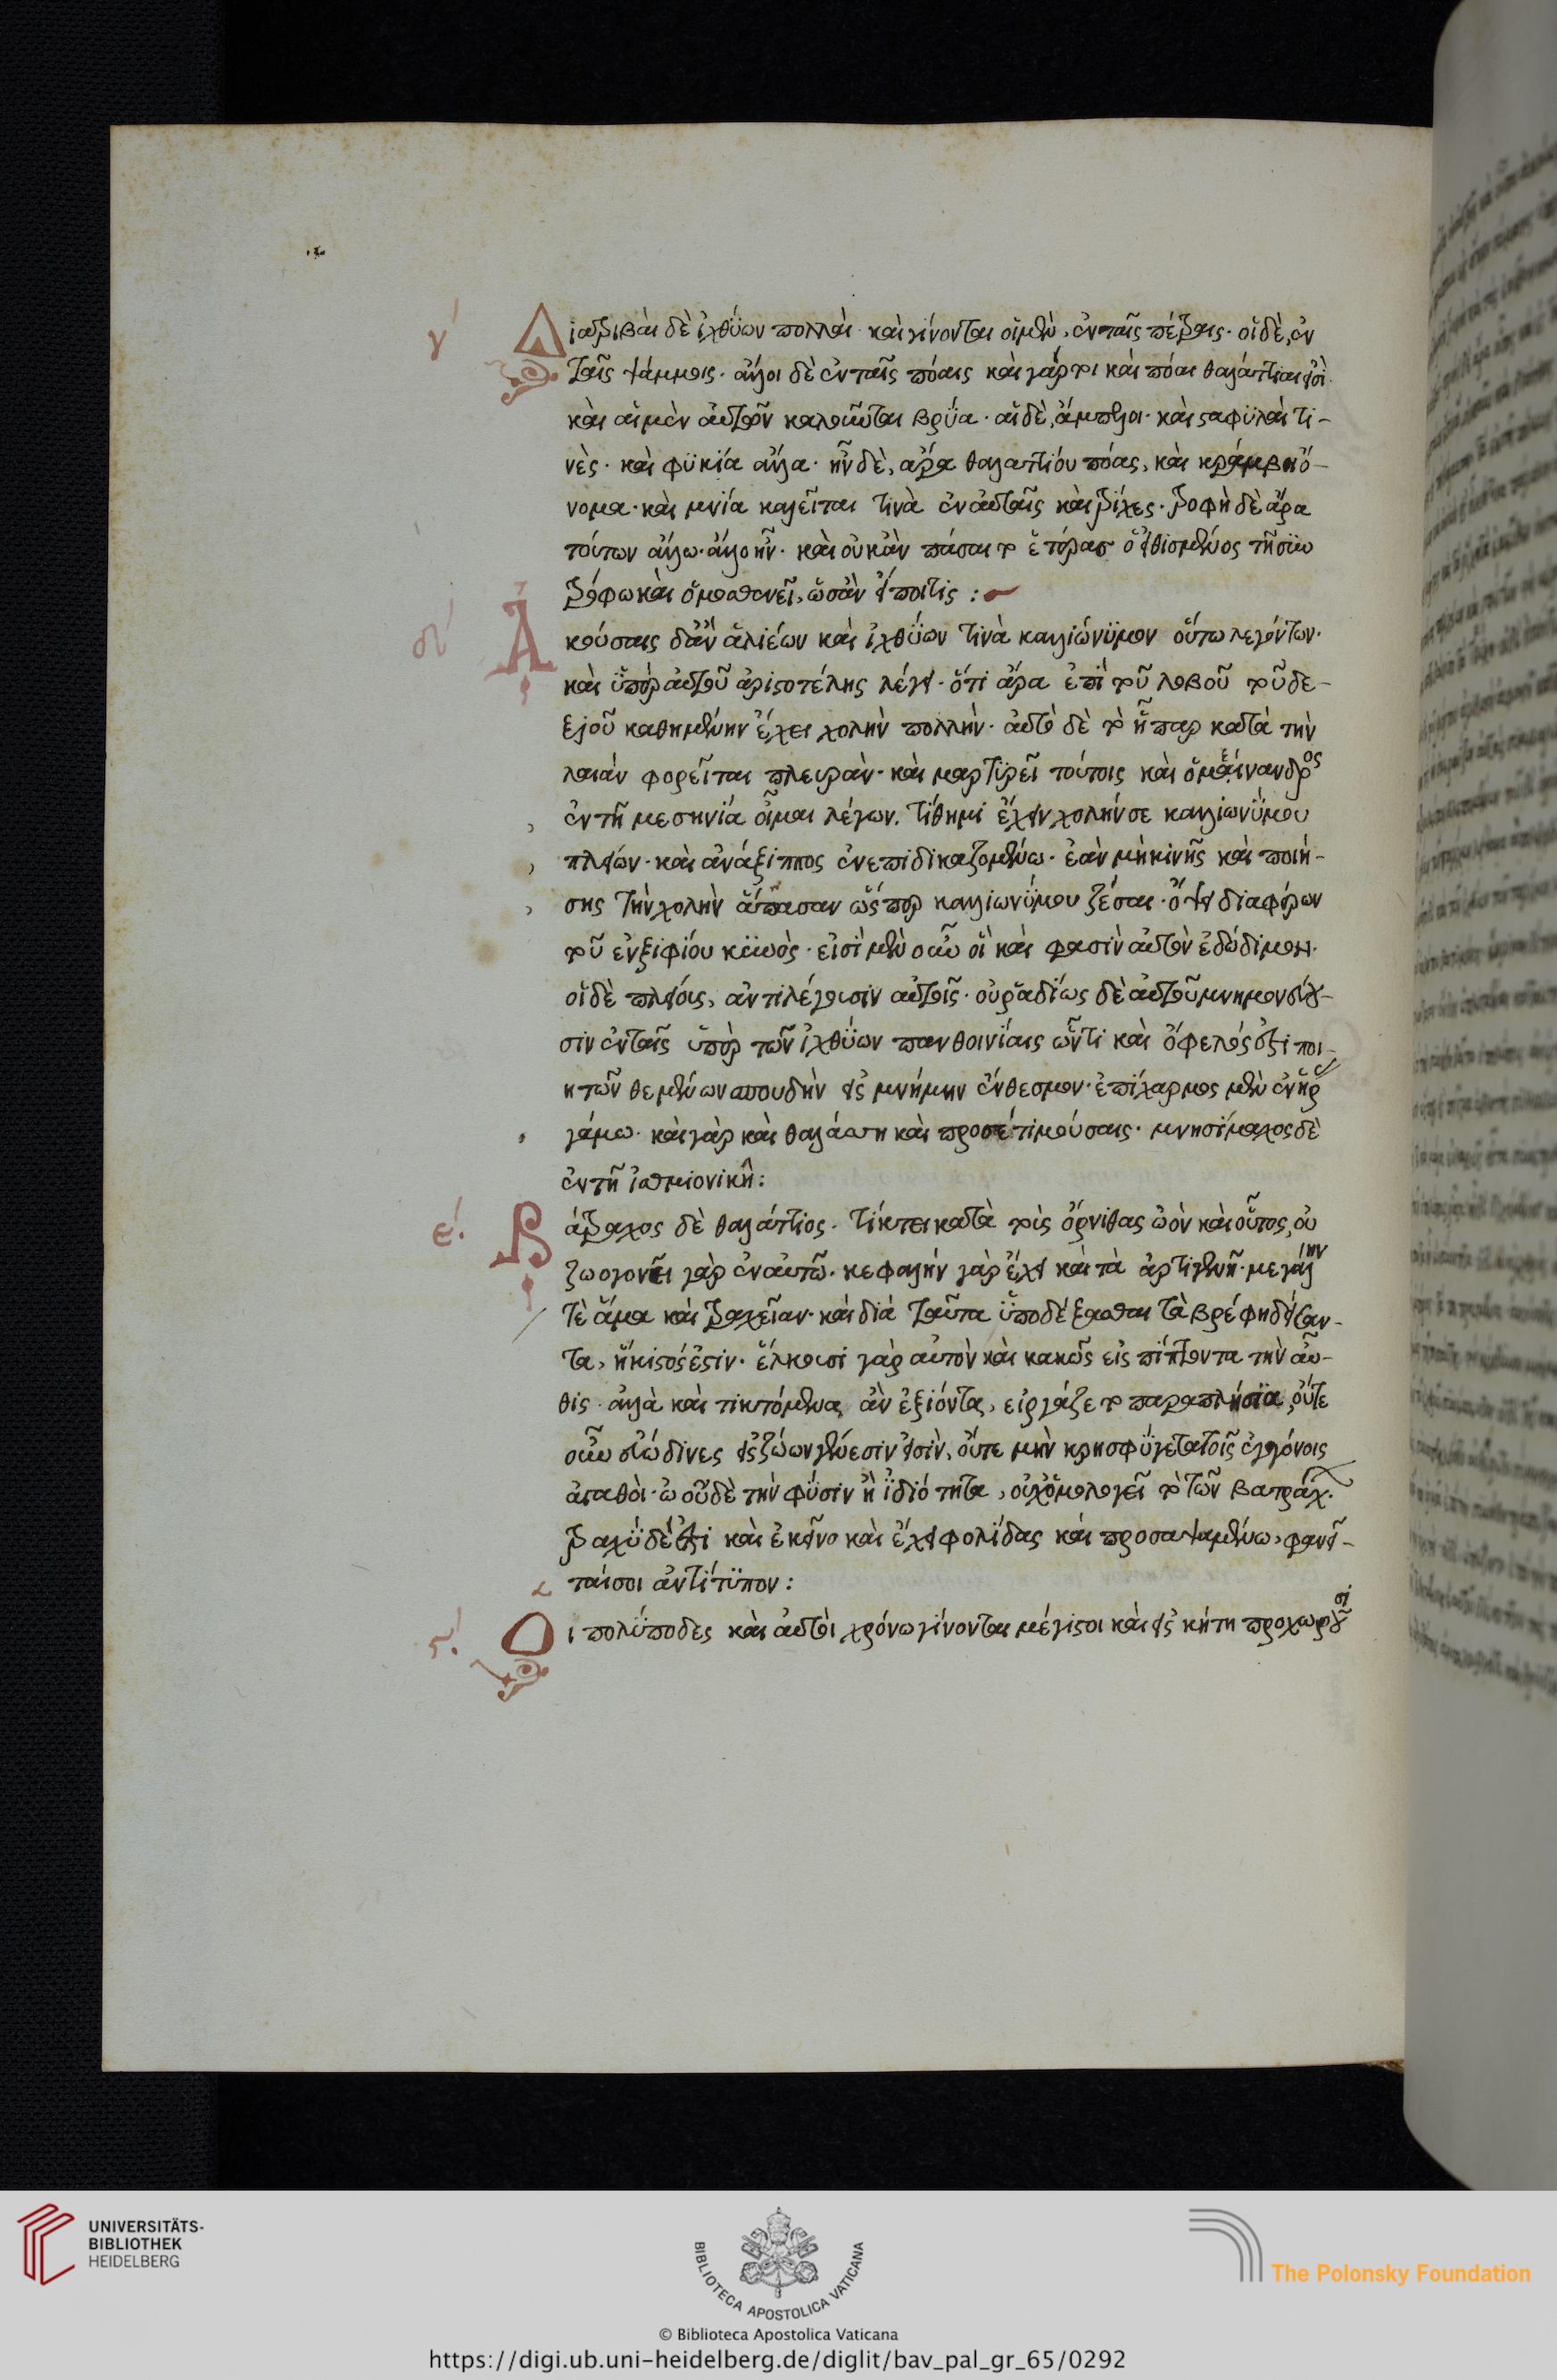 γ´ Διατριβαὶ δὲ ἰχθύων πολλαὶ· καὶ γίνονται οἱ μὲν, ἐν ταῖς πέτραις· οἱ δὲ, ἐν
ταῖς ψάμμοις· ἄλλοι δὲ ἐν ταῖς πόαις καὶ γάρ τοι καὶ πόαι θαλάττιαι εἰσὶ·
καὶ αἱ μὲν αὐτῶν καλοῦνται βρύα· αἱ δὲ, ἄμπελοι· καὶ σταφυλαὶ τι-
νὲς· καὶ φυκία ἄλλα· ἦν δὲ, ἄρα θαλαττίου πόας, καὶ κράμβη ὄ-
νομα· καὶ μνία καλεῖται τινὰ ἐν αὐταῖς καὶ τρίχες· τροφὴ δὲ ἄρα
τούτων ἄλλω· ἄλλο ἦν· καὶ οὐκ ἂν πάσαιτο ἑτέρας ὁ εἰθισμένος τῆ συν
τρόφω καὶ ὁμοσθενεῖ, ὡς ἂν εἴποι τις :
δ´ Ἀκούσαις δ' ἂν ἁλιέων καὶ ἰχθύων τινὰ καλλιώνυμον οὕτω λεγόντων·
καὶ ὑπὲρ αὐτοῦ ἀριστοτέλης λέγει· ὅτι ἄρα ἐπὶ τοῦ λοβοῦ τοῦ δε-
ξιοῦ καθημένην ἔχει χολὴν πολλὴν· αὐτὸ δὲ τὸ ἧπαρ κατὰ τὴν
λαιὰν φορεῖται πλευρὰν· καὶ μαρτυρεῖ τούτοις καὶ ὁ μένανδρος
ἐν τῆ μεσηνία οἶμαι λέγων. τίθημι ἔχειν χολήν σε καλλιωνύμου
πλείων· καὶ ἀνάξιππος ἐν ἐπιδικαζομένω· ἐὰν μὴ κινῆς καὶ ποιή-
σης τὴν χολὴν ἅπασαν ὥσπερ καλλιωνύμου ζέσαι· ὄψει διαφέρων
τοῦ ἐν ξιφίου κυνὸς· εἰσὶ μὲν οὖν οἳ καὶ φασὶν αὐτὸν ἐδώδιμον·
οἱ δὲ πλείους, ἀντιλέγουσιν αὐτοῖς· οὐ ῥαδίως δὲ αὐτοῦ μνημονεύου-
σιν ἐν ταῖς ὑπὲρ τῶν ἰχθύων πανθοινίαις ὧν τι καὶ ὄφελός ἐστι ποι-
ητῶν θεμένων σπουδὴν εἰς μνήμην ἔνθεσμον· ἐπίχαρμος μὲν ἐν ἥβ
γάμω· καὶ γὰρ καὶ θαλάσση καὶ προσέτι μούσαις· μνησίμαχος δὲ
ἐν τῆ ἰσθμιονίκη:
ε´. Βάτραχος δὲ θαλάττιος. τίκτει κατὰ τοὺς ὄρνιθας ὠὸν καὶ οὗτος, οὐ
ζωογονεῖ γὰρ ἐν αὐτῶ. κεφαλήν γὰρ ἔχει καὶ τὰ ἀρτιγενῆ· μεγάλην
τὲ ἅμα καὶ τραχεῖαν· καὶ διὰ ταῦτα ὑποδέξασθαι τὰ βρέφη δείσαν-
τα, ἥκιστός ἐστιν· ἕλκουσι γὰρ αὐτὸν καὶ κακῶς εἰσπίπτοντα τὴν αὖ-
θις· ἀλλὰ καὶ τικτόμενα ἂν ἐξιόντα, εἰργάζετο παραπλήσια, οὔτε
οὖν αἱ ὠδίνες εἰς ζώων γένεσιν εἰσὶν, οὔτε μὴν κρησφύγετα τοῖς ἐγγόνοις
ἀγαθοὶ· ὦ οὐδὲ τὴν φύσιν ἢ ἰδιότητα, οὐχ ὁμολογεῖ τὸ τῶν βατράχ.
τραχὺ δέ ἐστι καὶ ἐκεῖνο καὶ ἔχει φολίδας καὶ προσαψαμένω, φανεῖ-
ταί σοι ἀντίτυπον :
ϛ´. Οἱ πολύποδες καὶ αὐτοὶ χρόνω γίνονται μέγιστοι καὶ εἰς κήτη προχωροῦσι
UNIVERSITÄTS-
BIBLIOTHEK
HEIDELBERG
BIBLIOTECA APOSTOLICA VATICANA
The Polonsky Foundation
© Biblioteca Apostolica Vaticana
https://digi.ub.uni-heidelberg.de/diglit/bav_pal_gr_65/0292